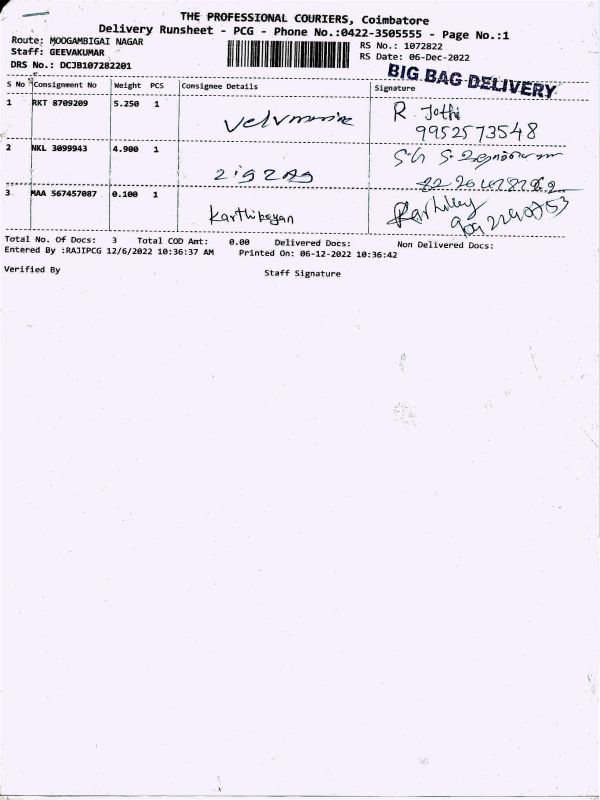 THE PROFESSIONAL COURIERS, Coimbatore
Delivery Runsheet - PCG - Phone No.:0422-3505555 - Page No.:1
Route: MOOGAMBIGAI NAGAR
RS No.: 1072822
Staff: GEEVAKUMAR
RS Date: 06-Dec-2022
DRS No.: DCJB107282201
BIG BAG DELIVERY
S No Consignment No Weight PCS Consignee Details Signature
1 RKT 8709209 5.250 1 R Jothi
9952573548
2 NKL 3099943 4.900 1 S.
zigzag
3 MAA 567457087 0.100 1
Karthikeyan
Total No. Of Docs: 3 Total COD Amt: 0.00 Delivered Docs: Non Delivered Docs:
Entered By :RAJIPCG 12/6/2022 10:36:37 AM Printed On: 06-12-2022 10:36:42
Verified By Staff Signature